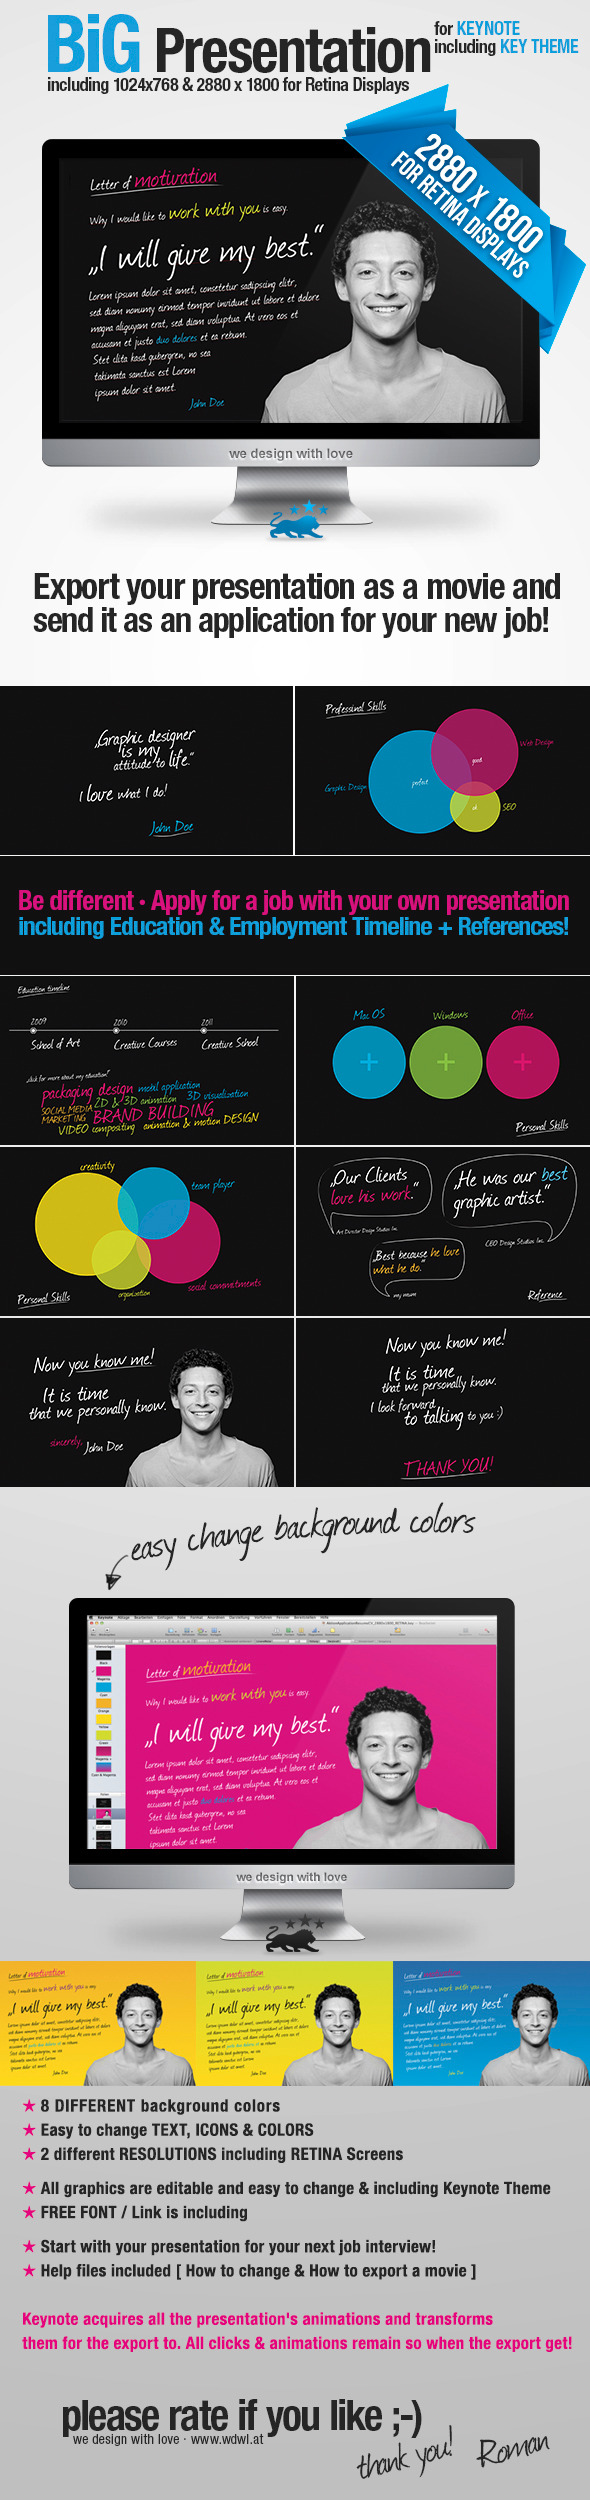 BiG Presentation
for KEYNOTE
including KEY THEME
including 1024x768 & 2880 x 1800 for Retina Displays
2880 x 1800
FOR RETINA DISPLAYS
Letter of motivation
Why I would like to work with you is easy.
„I will give my best.“
Lorem ipsum dolor sit amet, consetetur sadipscing elitr,
sed diam nonumy eirmod tempor invidunt ut labore et dolore
magna aliquyam erat, sed diam voluptua. At vero eos et
accusam et justo duo dolores et ea rebum.
Stet clita kasd gubergren, no sea
takimata sanctus est Lorem
ipsum dolor sit amet.
John Doe
we design with love
Export your presentation as a movie and
send it as an application for your new job!
„Graphic designer
is my
attitude to life.“
I love what I do!
John Doe
Professinal Skills
Web Design
good
Graphic Design
perfect
SEO
Be different · Apply for a job with your own presentation
including Education & Employment Timeline + References!
Education timeline
2009 2010 2011
School of Art Creative Courses Creative School
click for more about my education?
packaging design mobil application
SOCIAL MEDIA 2D & 3D animation 3D visualization
MARKETING BRAND BUILDING
VIDEO compositing animation & motion DESIGN
Mac OS Windows Office
Personal Skills
creativity
team player
social commitments
organization
Personal Skills
„Our Clients
love his work.“
Art Director Design Studios Inc.
„He was our best
graphic artist.“
CEO Design Studios Inc.
„Best because he love
what he do.“
my mum
Reference
Now you know me!
It is time
that we personally know.
sincerely, John Doe
Now you know me!
It is time
that we personally know.
I look forward
to talking to you :)
THANK YOU!
easy change background colors
Letter of motivation
Why I would like to work with you is easy.
„I will give my best.“
Lorem ipsum dolor sit amet, consetetur sadipscing elitr,
sed diam nonumy eirmod tempor invidunt ut labore et dolore
magna aliquyam erat, sed diam voluptua. At vero eos et
accusam et justo duo dolores et ea rebum.
Stet clita kasd gubergren, no sea
takimata sanctus est Lorem
ipsum dolor sit amet.
we design with love
Letter of motivation
Why I would like to work with you is easy.
„I will give my best.“
John Doe
Letter of motivation
Why I would like to work with you is easy.
„I will give my best.“
John Doe
Letter of motivation
Why I would like to work with you is easy.
„I will give my best.“
John Doe
★ 8 DIFFERENT background colors
★ Easy to change TEXT, ICONS & COLORS
★ 2 different RESOLUTIONS including RETINA Screens
★ All graphics are editable and easy to change & including Keynote Theme
★ FREE FONT / Link is including
★ Start with your presentation for your next job interview!
★ Help files included [ How to change & How to export a movie ]
Keynote acquires all the presentation's animations and transforms
them for the export to. All clicks & animations remain so when the export get!
please rate if you like ;-)
we design with love · www.wdwl.at
thank you! Roman